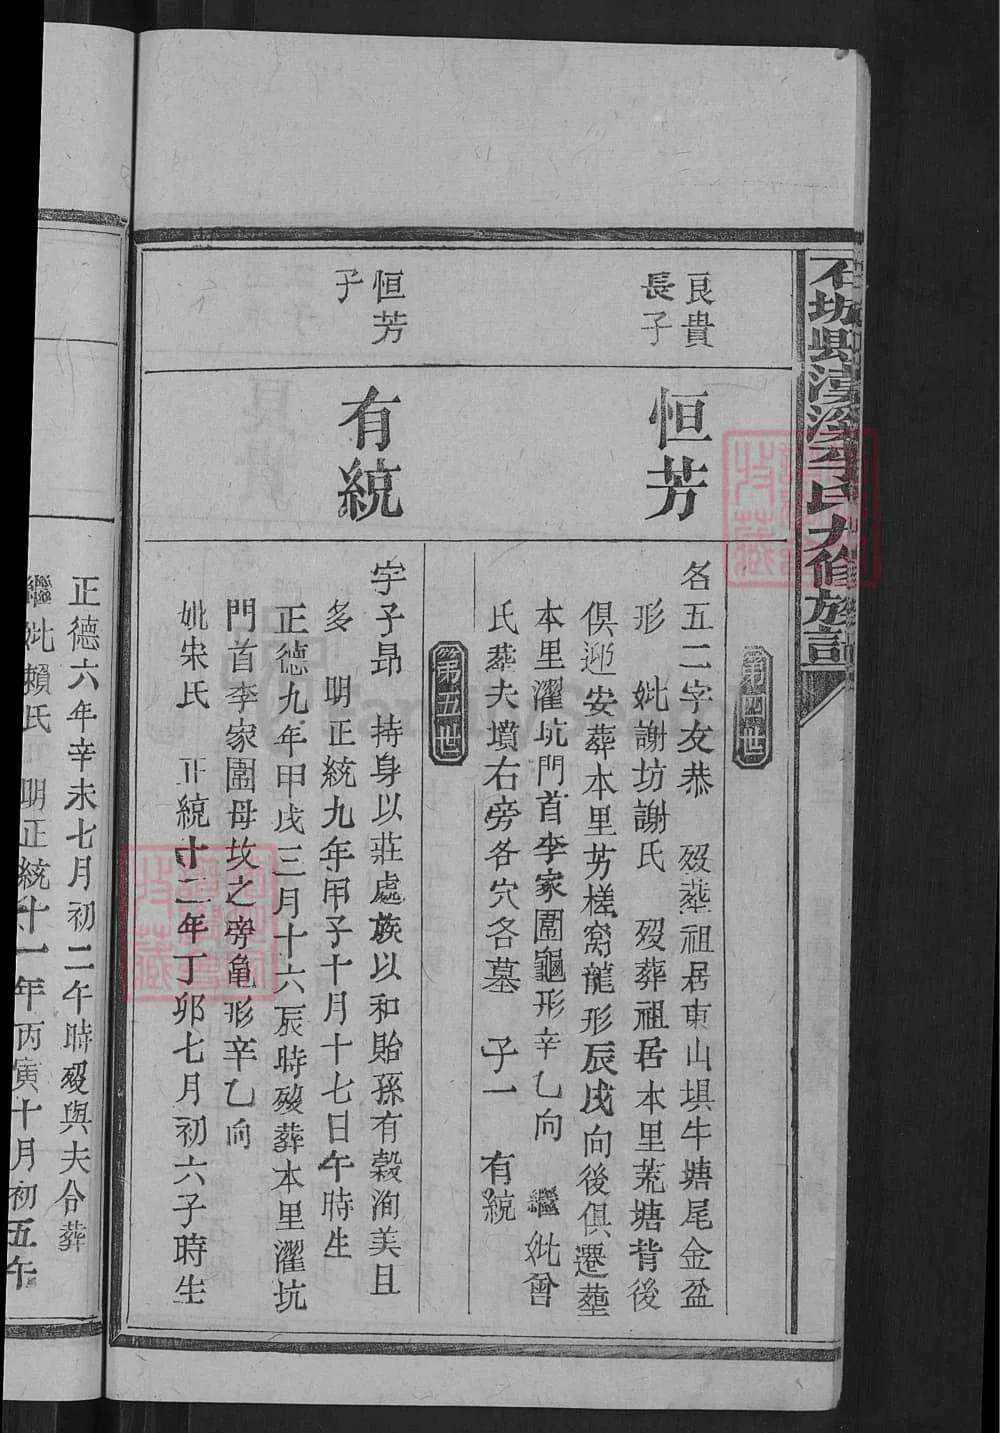 氏九修族譜
第四世
良貴
長子
恒芳
名五二字友恭 歿葬祖居東山垻牛塘尾金盆
形 妣謝坊謝氏 歿葬祖居本里芫塘背後
俱迎安葬本里艻槎窩龍形辰戌向後俱遷葬
本里濯坑門首李家圍龜形辛乙向 繼妣曾
氏葬夫墳右旁各穴各墓 子一 有統
第五世
恒芳
子
有統
字子昂 持身以莊處族以和貽孫有穀洵美且
多 明正統九年甲子十月十七日午時生
正德九年甲戌三月十六辰時歿葬本里濯坑
門首李家圍母坟之旁龜形辛乙向
妣宋氏 正統十二年丁卯七月初六子時生
正德六年辛未七月初二午時歿與夫合葬
繼妣賴氏 明正統十一年丙寅十月初五午